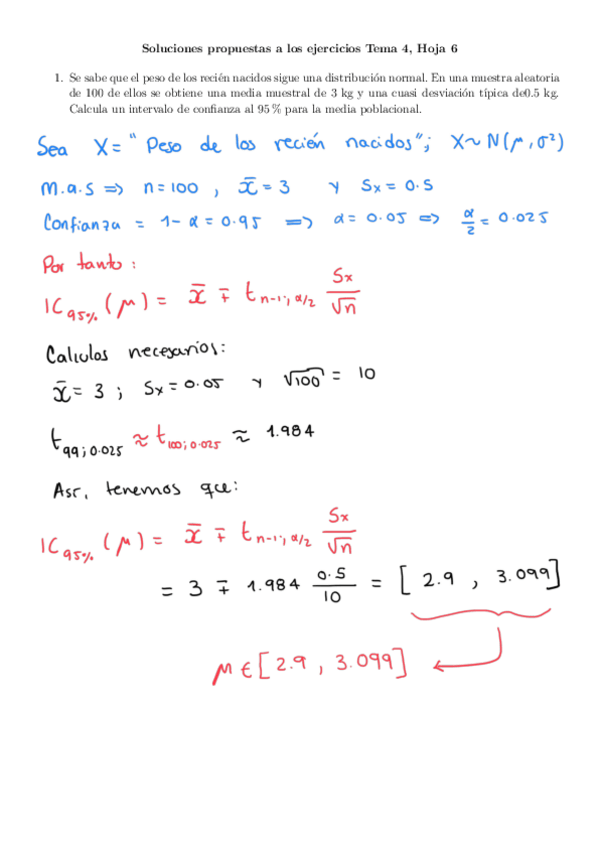 Soluciones propuestas a los ejercicios Tema 4, Hoja 6
1. Se sabe que el peso de los recién nacidos sigue una distribución normal. En una muestra aleatoria
de 100 de ellos se obtiene una media muestral de 3 kg y una cuasi desviación típica de0.5 kg.
Calcula un intervalo de confianza al 95 % para la media poblacional.
Sea X = "Peso de los recién nacidos"; X ~ N(μ, σ²)
m.a.s ⇒ n = 100 , x̄ = 3 y Sx = 0.5
Confianza = 1 - α = 0.95 ⇒ α = 0.05 ⇒ α/2 = 0.025
Por tanto :
IC95% (μ) = x̄ ∓ t n-1; α/2 Sx/√n
Calculos necesarios:
x̄ = 3 ; Sx = 0.05 y √100 = 10
t99;0.025 ≈ t100;0.025 ≈ 1.984
Así, tenemos que:
IC95% (μ) = x̄ ∓ t n-1; α/2 Sx/√n
= 3 ∓ 1.984 0.5/10 = [ 2.9 , 3.099 ]
μ ∈ [ 2.9 , 3.099 ]